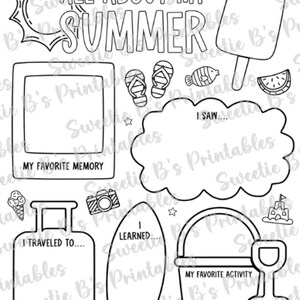 ALL ABOUT MY
SUMMER
I SAW....
MY FAVORITE MEMORY
I TRAVELED TO....
I
LEARNED...
MY FAVORITE ACTIVITY
Sweetie B's Printables